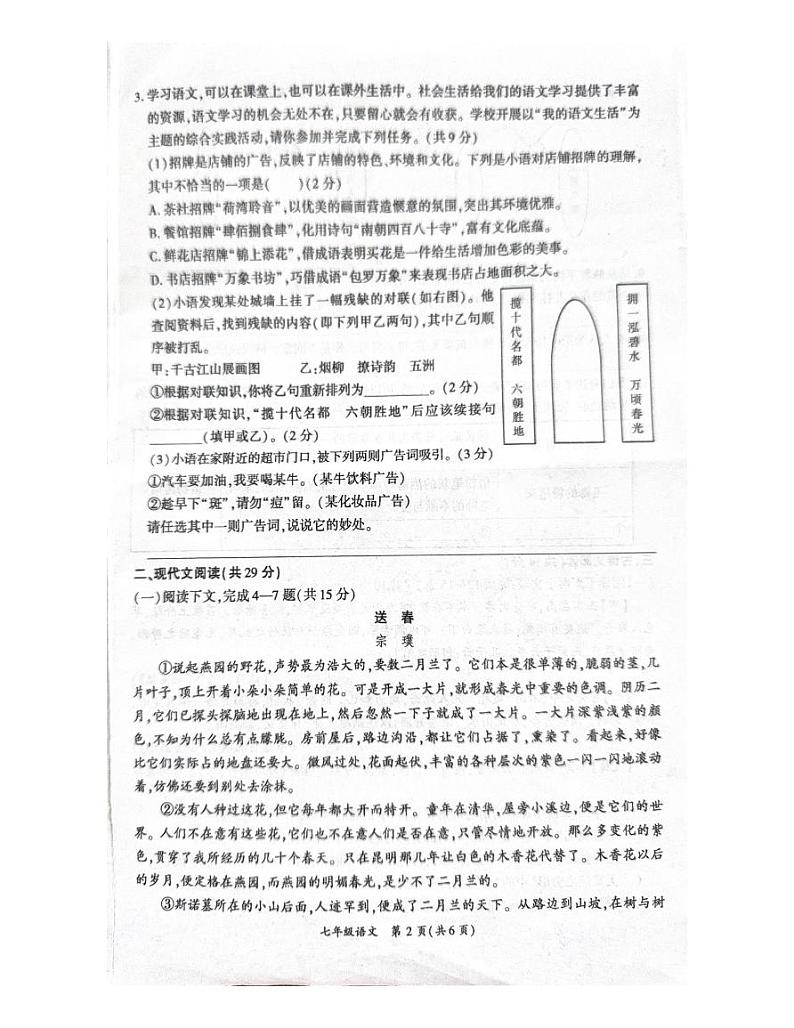 3. 学习语文,可以在课堂上,也可以在课外生活中。社会生活给我们的语文学习提供了丰富
的资源,语文学习的机会无处不在,只要留心就会有收获。学校开展以“我的语文生活”为
主题的综合实践活动,请你参加并完成下列任务。(共9分)
(1)招牌是店铺的广告,反映了店铺的特色、环境和文化。下列是小语对店铺招牌的理解,
其中不恰当的一项是(  )(2分)
A. 茶社招牌“荷湾聆音”,以优美的画面营造惬意的氛围,突出其环境优雅。
B. 餐馆招牌“肆佰捌食肆”,化用诗句“南朝四百八十寺”,富有文化底蕴。
C. 鲜花店招牌“锦上添花”,借成语表明买花是一件给生活增加色彩的美事。
D. 书店招牌“万象书坊”,巧借成语“包罗万象”来表现书店占地面积之大。
(2)小语发现某处城墙上挂了一幅残缺的对联(如右图)。他
查阅资料后,找到残缺的内容(即下列甲乙两句),其中乙句顺
序被打乱。
甲:千古江山展画图  乙:烟柳 撩诗韵 五洲
①根据对联知识,你将乙句重新排列为________。(2分)
②根据对联知识,“揽十代名都 六朝胜地”后应该续接句
________(填甲或乙)。(2分)
揽十代名都 六朝胜地
拥一泓碧水 万顷春光
(3)小语在家附近的超市门口,被下列两则广告词吸引。(3分)
①汽车要加油,我要喝某牛。(某牛饮料广告)
②趁早下“斑”,请勿“痘”留。(某化妆品广告)
请任选其中一则广告词,说说它的妙处。
二、现代文阅读(共29分)
(一)阅读下文,完成4—7题(共15分)
送 春
宗 璞
①说起燕园的野花,声势最为浩大的,要数二月兰了。它们本是很单薄的,脆弱的茎,几
片叶子,顶上开着小朵小朵简单的花。可是开成一大片,就形成春光中重要的色调。阴历二
月,它们已探头探脑地出现在地上,然后忽然一下子就成了一大片。一大片深紫浅紫的颜
色,不知为什么总有点朦胧。房前屋后,路边沟沿,都让它们占据了,熏染了。看起来,好像
比它们实际占的地盘还要大。微风过处,花面起伏,丰富的各种层次的紫色一闪一闪地滚动
着,仿佛还要到别处去涂抹。
②没有人种过这花,但它每年都大开而特开。童年在清华,屋旁小溪边,便是它们的世
界。人们不在意有这些花,它们也不在意人们是否在意,只管尽情地开放。那么多变化的紫
色,贯穿了我所经历的几十个春天。只在昆明那几年让白色的木香花代替了。木香花以后
的岁月,便定格在燕园,而燕园的明媚春光,是少不了二月兰的。
③斯诺墓所在的小山后面,人迹罕到,便成了二月兰的天下。从路边到山坡,在树与树
七年级语文 第2页(共6页)